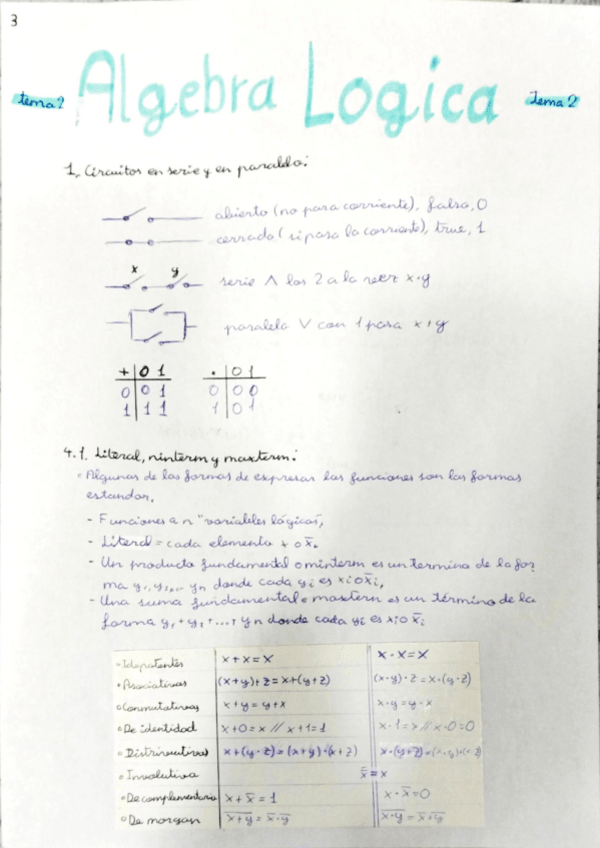 3
tema 2 Algebra Logica Tema 2
1. Circuitos en serie y en paralelo:
abierto (no pasa corriente), falso, 0
cerrado (si pasa la corriente), true, 1
x y
serie ∧ los 2 a la vez x·y
paralelo ∨ con 1 pasa x+y
+ 0 1 · 0 1
0 0 1 0 0 0
1 1 1 1 0 1
4.1. Literal, minterm y maxterm:
• Algunas de las formas de expresar las funciones son las formas
estandar.
- Funciones a n "variables lógicas",
- Literal = cada elemento x o x̄.
- Un producto fundamental o minterm es un termino de la for
ma y₁, y₂, ... yn donde cada yi es xi o x̄i,
- Una suma fundamental o maxterm es un término de la
forma y₁ + y₂ + ... + yn donde cada yi es xi o x̄i
• Idepotentes x + x = x x · x = x
• Asociativas (x+y)+z = x+(y+z) (x·y)·z = x·(y·z)
• Conmutativas x + y = y + x x·y = y·x
• De identidad x+0 = x // x+1 = 1 x·1 = x // x·0 = 0
• Distributivas x+(y·z) = (x+y)·(x+z) x·(y+z) = (x·y)+(x·z)
• Involutiva x̿ = x
• De complementario x + x̄ = 1 x · x̄ = 0
• De morgan x̅+̅y̅ = x̄·ȳ x̅·̅y̅ = x̄+ȳ